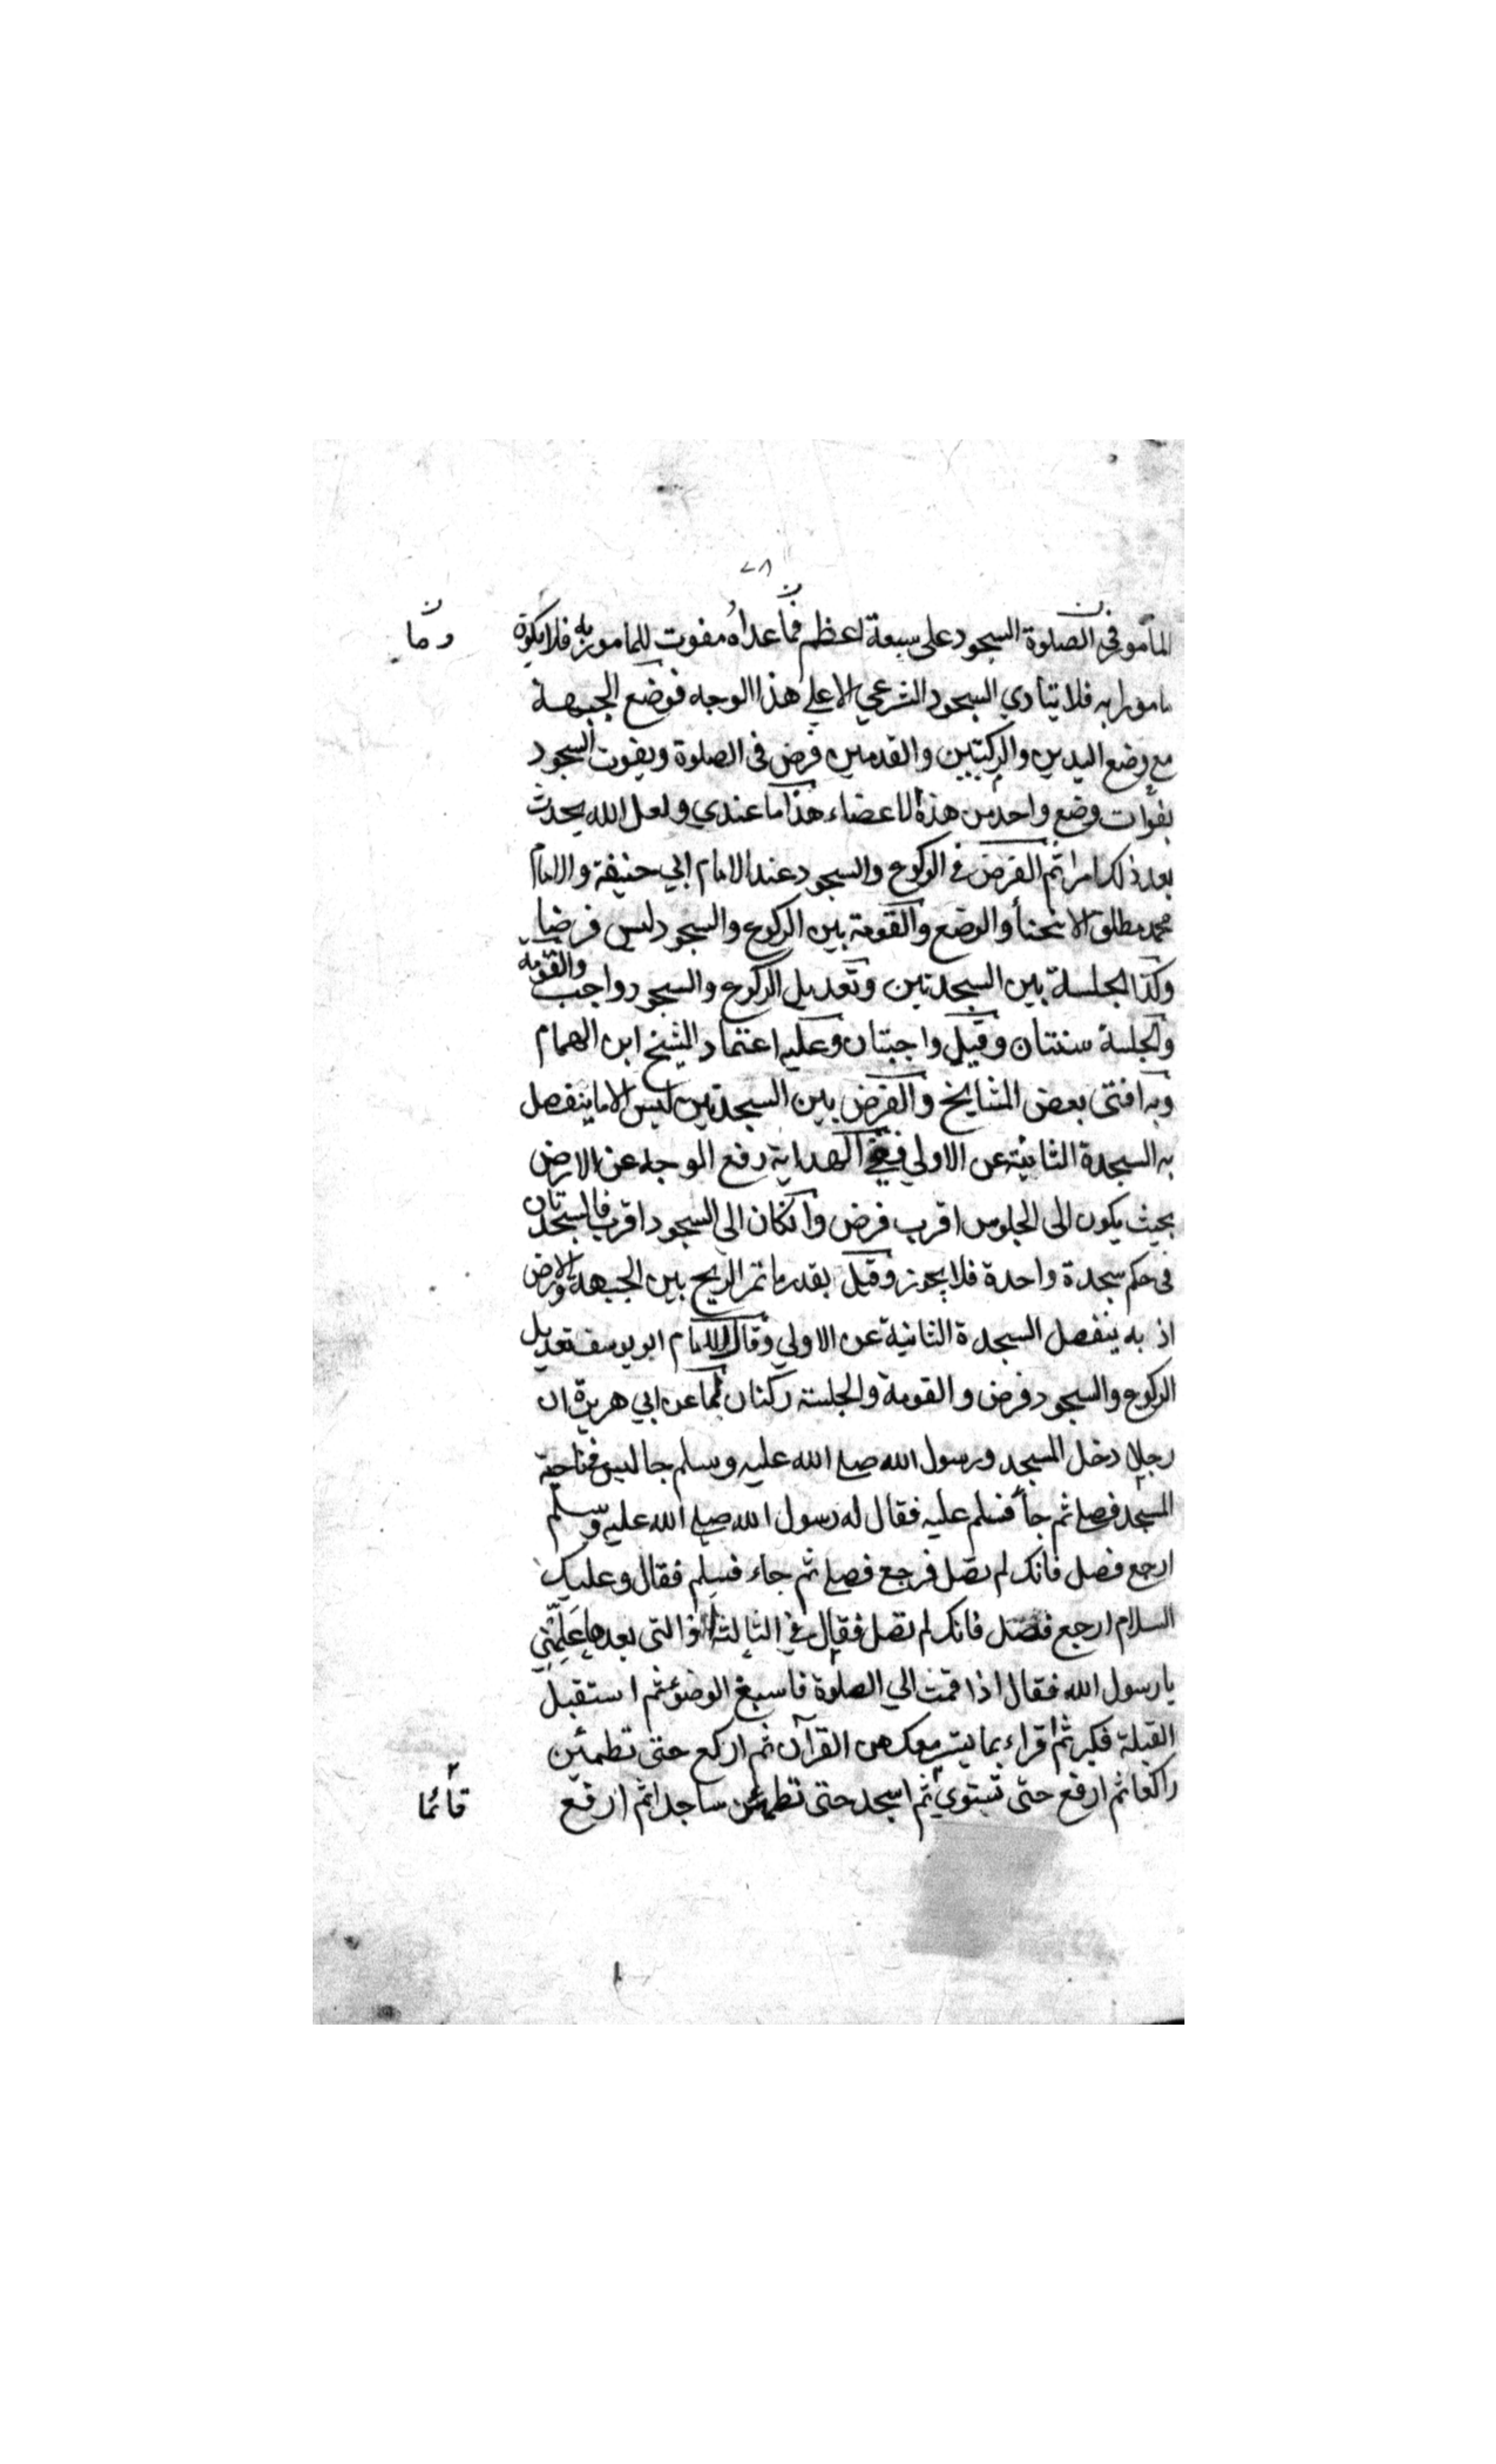 ٧٨
المأمور في الصلوة السجود على سبعة اعظم فما عداه مفوت للمامور به فلا يكون
مامورا به فلا يتأدي السجود الشرعي الا علي هذا الوجه فوضع الجبهة
مع وضع اليدين والركبتين والقدمين فرض فى الصلوة ويفوت السجود
بفوات وضع واحد من هذه الاعضاء هذا ما عندي ولعل الله يحدث
بعد ذلك امرا ثم الفرض في الركوع والسجود عند الامام ابي حنيفة والامام
محمد مطلق الانحنأ والوضع والقومة بين الركوع والسجود ليس فرضا
وكذا الجلسة بين السجدتين وتعديل الركوع والسجود واجب والقومة
والجلسة سنتان وقيل واجبتان وعليه اعتماد الشيخ ابن الهمام
وبه افتى بعض المشايخ والفرض بين السجدتين ليس الا ما ينفصل
به السجدة الثانية عن الاولي ففي الهداية رفع الوجه عن الارض
بحيث يكون الى الجلوس اقرب فرض وانكان الى السجود اقرب فالسجدتان
فى حكم سجدة واحدة فلا يجوز وقيل بقدر ما تمر الريح بين الجبهة والارض
اذ به ينفصل السجدة الثانية عن الاولي وقال الامام ابو يوسف تعديل
الركوع والسجود فرض والقومة والجلسة ركنان لما عن ابي هريرة ان
رجلا دخل المسجد ورسول الله صلي الله عليه وسلم جالس في ناحية
المسجد فصلي ثم جأ فسلم عليه فقال له رسول الله صلي الله عليه وسلم
ارجع فصل فانك لم تصل فرجع فصلي ثم جاء فسلم فقال وعليك
السلام ارجع فصل فانك لم تصل فقال في الثالثة او التى بعدها علمني
يا رسول الله فقال اذا قمت الي الصلوة فاسبغ الوضوء ثم استقبل
القبلة فكبر ثم اقراء بما تيسر معك من القرآن ثم اركع حتى تطمئن
راكعا ثم ارفع حتى تستوي ثم اسجد حتى تطمئن ساجدا ثم ارفع
قائما